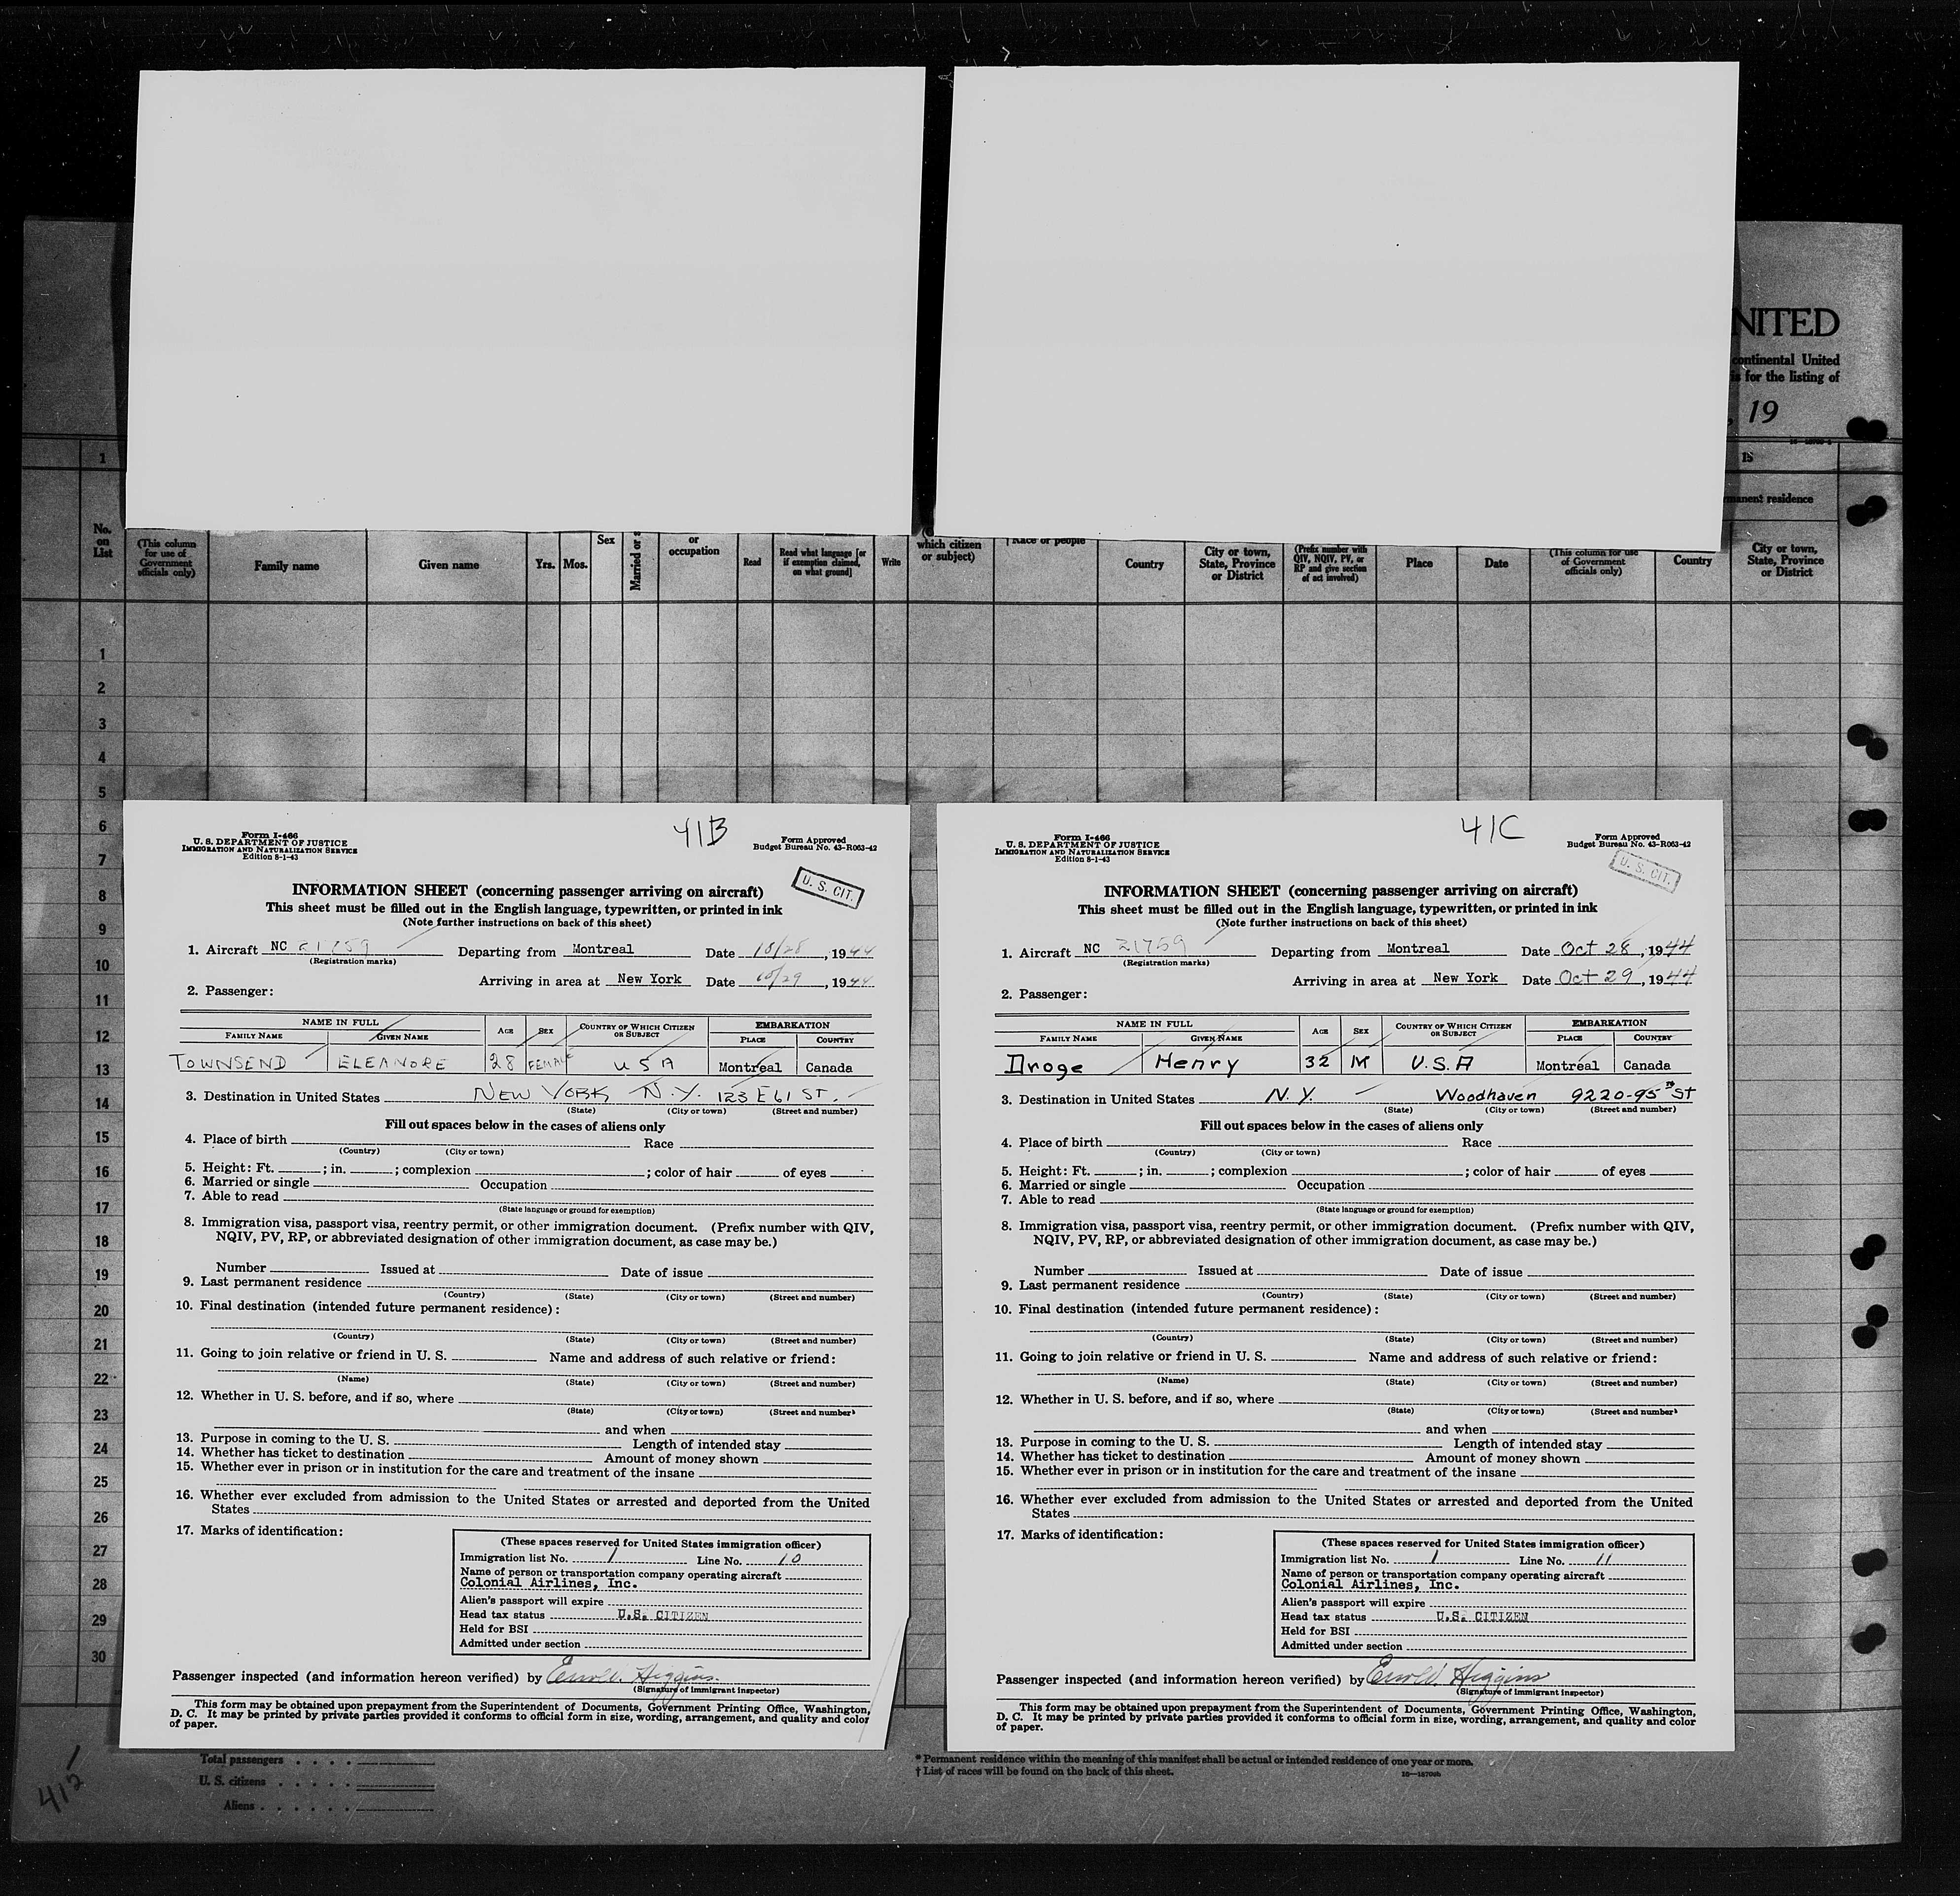 NITED
continental United
is for the listing of
, 19
1
15
manent residence
No. on List
(This column for use of Government officials only)
Family name
Given name
Yrs.
Mos.
Sex
Married or s
or occupation
Read
Read what language [or if exemption claimed, on what ground]
Write
which citizen or subject)
† Race or people
Country
City or town, State, Province or District
(Prefix number with QIV, NQIV, PV, or RP and give section of act involved)
Place
Date
(This column for use of Government officials only)
Country
City or town, State, Province or District
1
2
3
4
5
6
7
8
9
10
11
12
13
14
15
16
17
18
19
20
21
22
23
24
25
26
27
28
29
30
Form I-466
U. S. DEPARTMENT OF JUSTICE
IMMIGRATION AND NATURALIZATION SERVICE
Edition 8-1-43
41B
Form Approved
Budget Bureau No. 43-R063-42
U. S. CIT.
INFORMATION SHEET (concerning passenger arriving on aircraft)
This sheet must be filled out in the English language, typewritten, or printed in ink
(Note further instructions on back of this sheet)
1. Aircraft NC 21759 Departing from Montreal Date 10/28, 1944
(Registration marks)
Arriving in area at New York Date 10/29, 1944
2. Passenger:
NAME IN FULL AGE SEX COUNTRY OF WHICH CITIZEN OR SUBJECT EMBARKATION
FAMILY NAME GIVEN NAME PLACE COUNTRY
TOWNSEND ELEANORE 28 FEMALE USA Montreal Canada
3. Destination in United States NEW YORK N.Y. 123 E 61 ST.
(State) (City or town) (Street and number)
Fill out spaces below in the cases of aliens only
4. Place of birth Race
(Country) (City or town)
5. Height: Ft. ; in. ; complexion ; color of hair of eyes
6. Married or single Occupation
7. Able to read
(State language or ground for exemption)
8. Immigration visa, passport visa, reentry permit, or other immigration document. (Prefix number with QIV,
NQIV, PV, RP, or abbreviated designation of other immigration document, as case may be.)
Number Issued at Date of issue
9. Last permanent residence
(Country) (State) (City or town) (Street and number)
10. Final destination (intended future permanent residence):
(Country) (State) (City or town) (Street and number)
11. Going to join relative or friend in U. S. Name and address of such relative or friend:
(Name) (State) (City or town) (Street and number)
12. Whether in U. S. before, and if so, where
(State) (City or town) (Street and number)
and when
13. Purpose in coming to the U. S. Length of intended stay
14. Whether has ticket to destination Amount of money shown
15. Whether ever in prison or in institution for the care and treatment of the insane
16. Whether ever excluded from admission to the United States or arrested and deported from the United
States
17. Marks of identification:
(These spaces reserved for United States immigration officer)
Immigration list No. 1 Line No. 10
Name of person or transportation company operating aircraft
Colonial Airlines, Inc.
Alien's passport will expire
Head tax status U.S. CITIZEN
Held for BSI
Admitted under section
Passenger inspected (and information hereon verified) by Errol W. Higgins
(Signature of immigrant inspector)
This form may be obtained upon prepayment from the Superintendent of Documents, Government Printing Office, Washington,
D. C. It may be printed by private parties provided it conforms to official form in size, wording, arrangement, and quality and color
of paper.
Form I-466
U. S. DEPARTMENT OF JUSTICE
IMMIGRATION AND NATURALIZATION SERVICE
Edition 8-1-43
41C
Form Approved
Budget Bureau No. 43-R063-42
U. S. CIT.
INFORMATION SHEET (concerning passenger arriving on aircraft)
This sheet must be filled out in the English language, typewritten, or printed in ink
(Note further instructions on back of this sheet)
1. Aircraft NC 21759 Departing from Montreal Date Oct 28, 1944
(Registration marks)
Arriving in area at New York Date Oct 29, 1944
2. Passenger:
NAME IN FULL AGE SEX COUNTRY OF WHICH CITIZEN OR SUBJECT EMBARKATION
FAMILY NAME GIVEN NAME PLACE COUNTRY
Droge Henry 32 M U.S.A Montreal Canada
3. Destination in United States N.Y. Woodhaven 9220-95th St
(State) (City or town) (Street and number)
Fill out spaces below in the cases of aliens only
4. Place of birth Race
(Country) (City or town)
5. Height: Ft. ; in. ; complexion ; color of hair of eyes
6. Married or single Occupation
7. Able to read
(State language or ground for exemption)
8. Immigration visa, passport visa, reentry permit, or other immigration document. (Prefix number with QIV,
NQIV, PV, RP, or abbreviated designation of other immigration document, as case may be.)
Number Issued at Date of issue
9. Last permanent residence
(Country) (State) (City or town) (Street and number)
10. Final destination (intended future permanent residence):
(Country) (State) (City or town) (Street and number)
11. Going to join relative or friend in U. S. Name and address of such relative or friend:
(Name) (State) (City or town) (Street and number)
12. Whether in U. S. before, and if so, where
(State) (City or town) (Street and number)
and when
13. Purpose in coming to the U. S. Length of intended stay
14. Whether has ticket to destination Amount of money shown
15. Whether ever in prison or in institution for the care and treatment of the insane
16. Whether ever excluded from admission to the United States or arrested and deported from the United
States
17. Marks of identification:
(These spaces reserved for United States immigration officer)
Immigration list No. 1 Line No. 11
Name of person or transportation company operating aircraft
Colonial Airlines, Inc.
Alien's passport will expire
Head tax status U.S. CITIZEN
Held for BSI
Admitted under section
Passenger inspected (and information hereon verified) by Errol W. Higgins
(Signature of immigrant inspector)
This form may be obtained upon prepayment from the Superintendent of Documents, Government Printing Office, Washington,
D. C. It may be printed by private parties provided it conforms to official form in size, wording, arrangement, and quality and color
of paper.
Total passengers
U. S. citizens
Aliens
* Permanent residence within the meaning of this manifest shall be actual or intended residence of one year or more.
† List of races will be found on the back of this sheet.